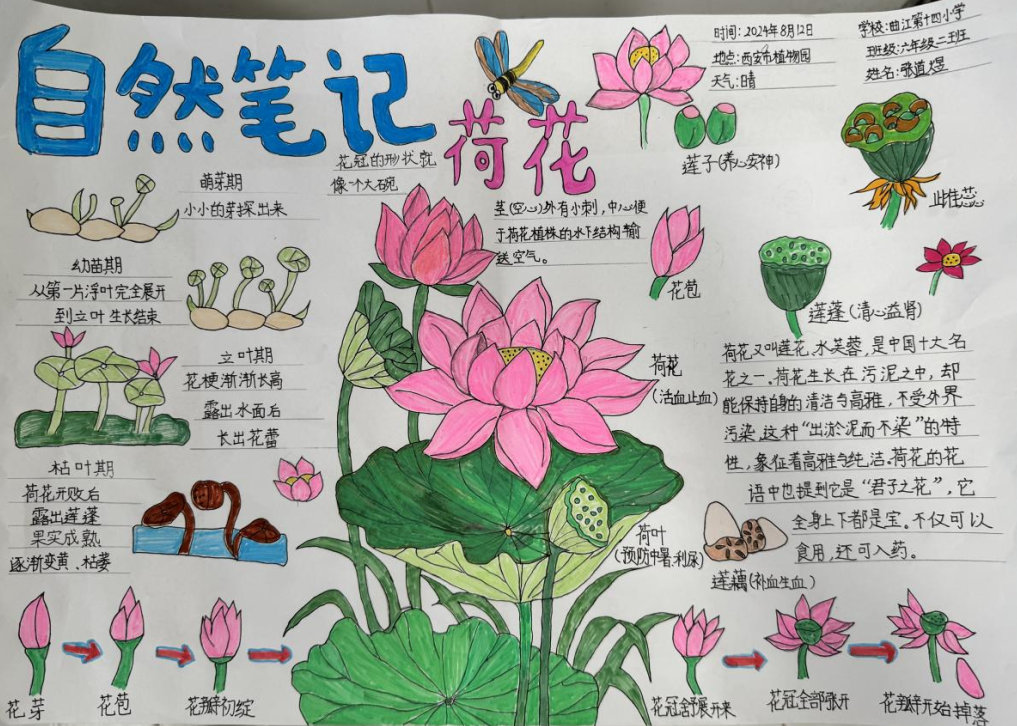 自然笔记
荷花
时间:2024年8月12日
地点:西安市植物园
天气:晴
学校:曲江第十四小学
班级:六年级二班
姓名:张道煜
花冠的形状就
像一个大碗
莲子(养心安神)
雌蕊
萌芽期
小小的芽探出来
茎(空心)外有小刺,中心便
于荷花植株的水下结构输
送空气。
花苞
幼苗期
从第一片浮叶完全展开
到立叶生长结束
莲蓬(清心益肾)
立叶期
花梗渐渐长高
露出水面后
长出花蕾
荷花
(活血止血)
荷花又叫莲花,水芙蓉,是中国十大名
花之一。荷花生长在污泥之中,却
能保持自身的清洁与高雅,不受外界
污染,这种“出淤泥而不染”的特
性,象征着高雅与纯洁。荷花的花
语中也提到它是“君子之花”,它
全身上下都是宝。不仅可以
食用,还可入药。
枯叶期
荷花开败后
露出莲蓬
果实成熟
逐渐变黄、枯萎
荷叶
(预防中暑、利尿)
莲藕(补血生血)
花芽
花苞
花瓣初绽
花冠舒展开来
花冠全部张开
花瓣开始掉落